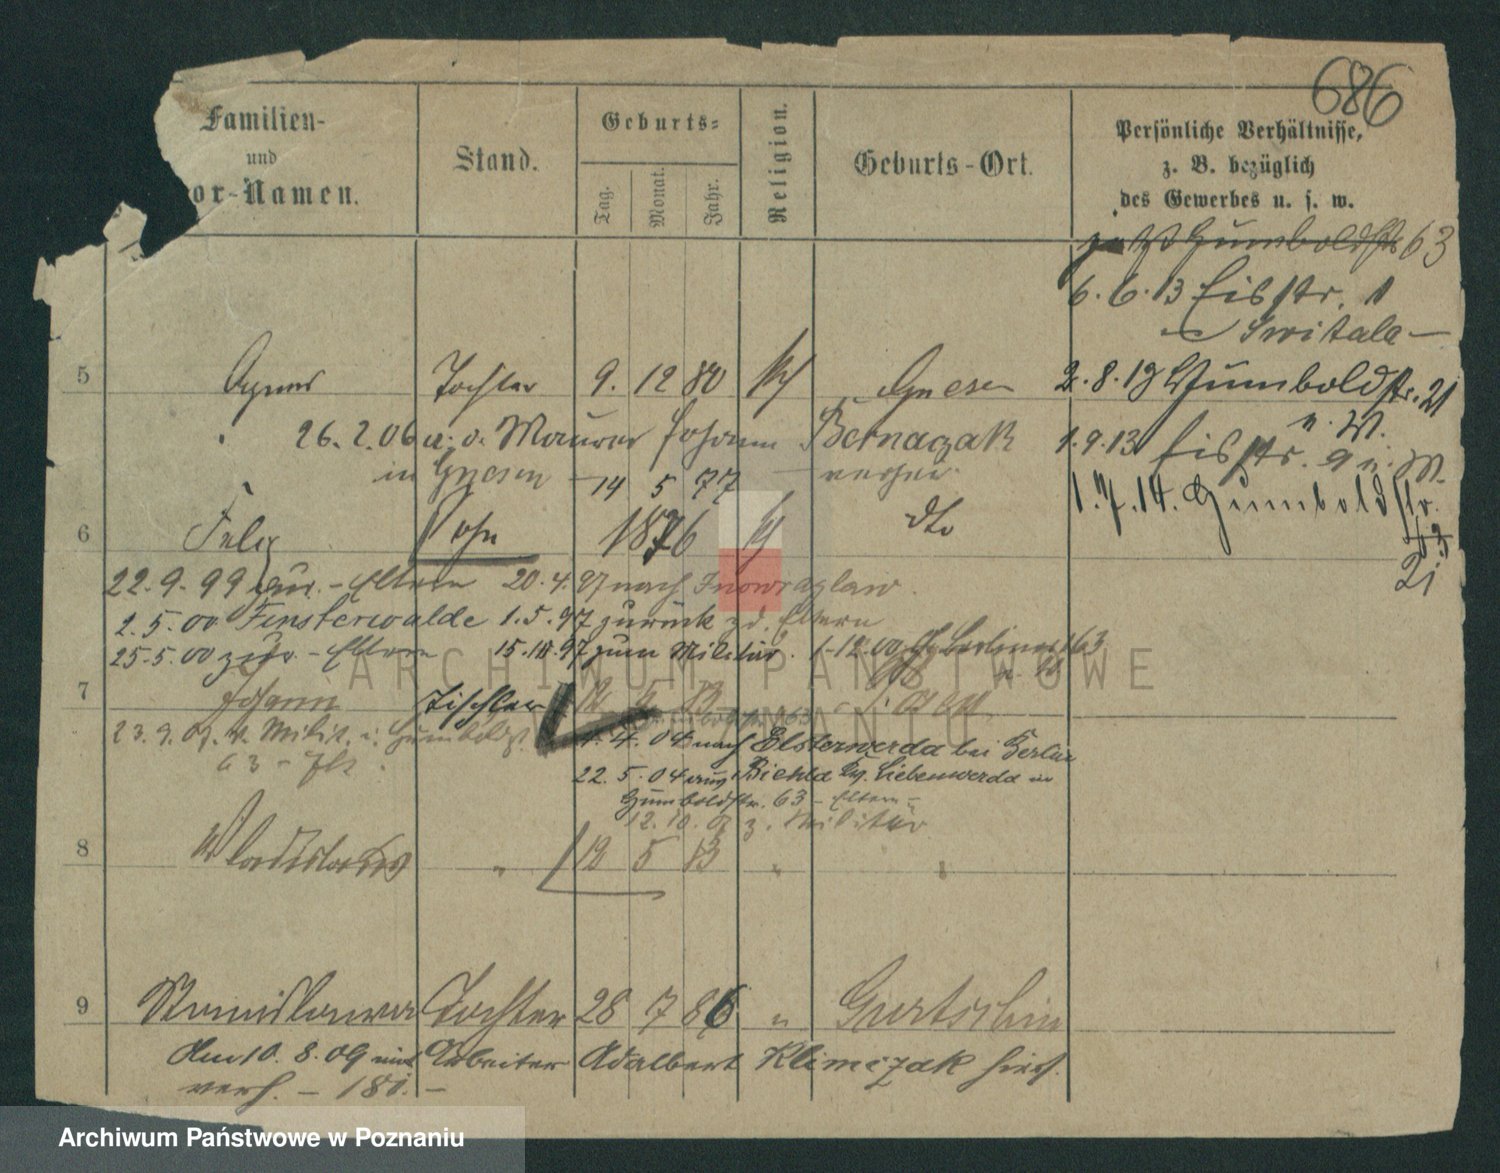 686
Familien-
und
or-Namen.
Stand.
Geburts-
Tag.
Monat.
Jahr.
Religion.
Geburts-Ort.
Persönliche Verhältnisse,
z. B. bezüglich
des Gewerbes u. s. w.
Humboldtstr 63
6. 6. 13 Eisstr. 1
Switala
5 Agnes Tochter 9. 12 80 Gnesen
2. 8. 13 Humboldtstr. 21
26. 2. 06 Maurer Johann Bernaczak
1. 9. 13 Eisstr. 9
in Gnesen 14 5 77
1. 7. 14. Humboldtstr.
21
6 Felix Sohn 1876 dto
22. 9. 99 zur. - Eltern 20. 4. 97 nach Inowrazlaw
2. 5. 00 Finsterwalde 1. 5. 97 zurück zd. Eltern
25. 5. 00 zur. - Eltern 15. 10. 97 zum Militär. 1-12.00 Berliner 63
7 Johann Tischler 12 5 83
23. 9. Milit. Humboldst.
63
4. 4. 04 nach Elsterwerda bei Berlin
22. 5. 04 aus Biehla Kr. Liebenwerda in
Humboldstr. 63 - Eltern -
12. 10. z. Militär
8 Wladislaus " 12 5 83 " "
9 Stanislawa Tochter 28 7 86 " Gurtschin
Am 10. 8. 09 mit Arbeiter Adalbert Klimczak hies.
verh. - 181. -
ARCHIWUM PAŃSTWOWE
W POZNANIU
Archiwum Państwowe w Poznaniu